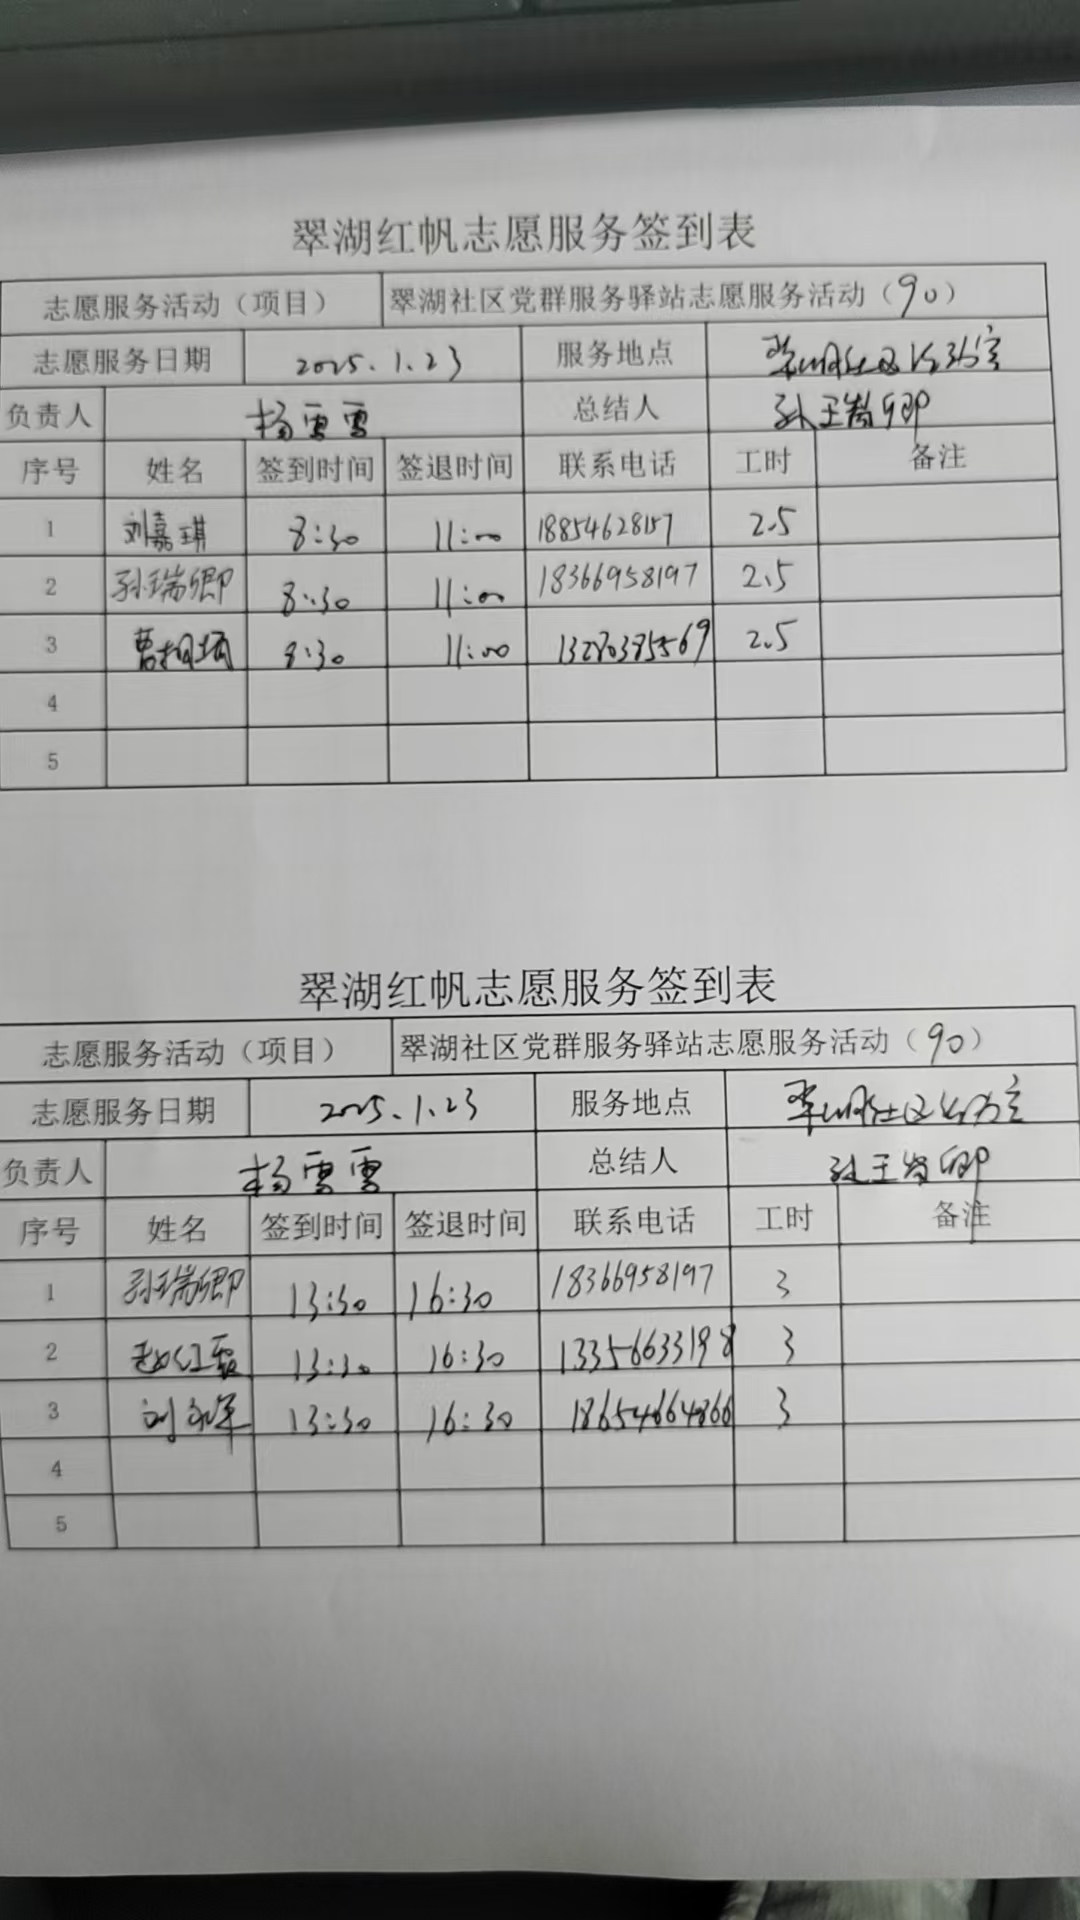 翠湖红帆志愿服务签到表
志愿服务活动（项目） 翠湖社区党群服务驿站志愿服务活动（90）
志愿服务日期 2025.1.23 服务地点 翠湖社区
负责人 杨雪雪 总结人 孙瑞卿
序号 姓名 签到时间 签退时间 联系电话 工时 备注
1 刘嘉琪 8:30 11:00 18854628157 2.5
2 孙瑞卿 8:30 11:00 18366958197 2.5
3 8:30 11:00 2.5
4
5
翠湖红帆志愿服务签到表
志愿服务活动（项目） 翠湖社区党群服务驿站志愿服务活动（90）
志愿服务日期 2025.1.23 服务地点 翠湖社区
负责人 杨雪雪 总结人 孙瑞卿
序号 姓名 签到时间 签退时间 联系电话 工时 备注
1 孙瑞卿 13:30 16:30 18366958197 3
2 赵红霞 13:30 16:30 13356633198 3
3 刘永军 13:30 16:30 18654664866 3
4
5